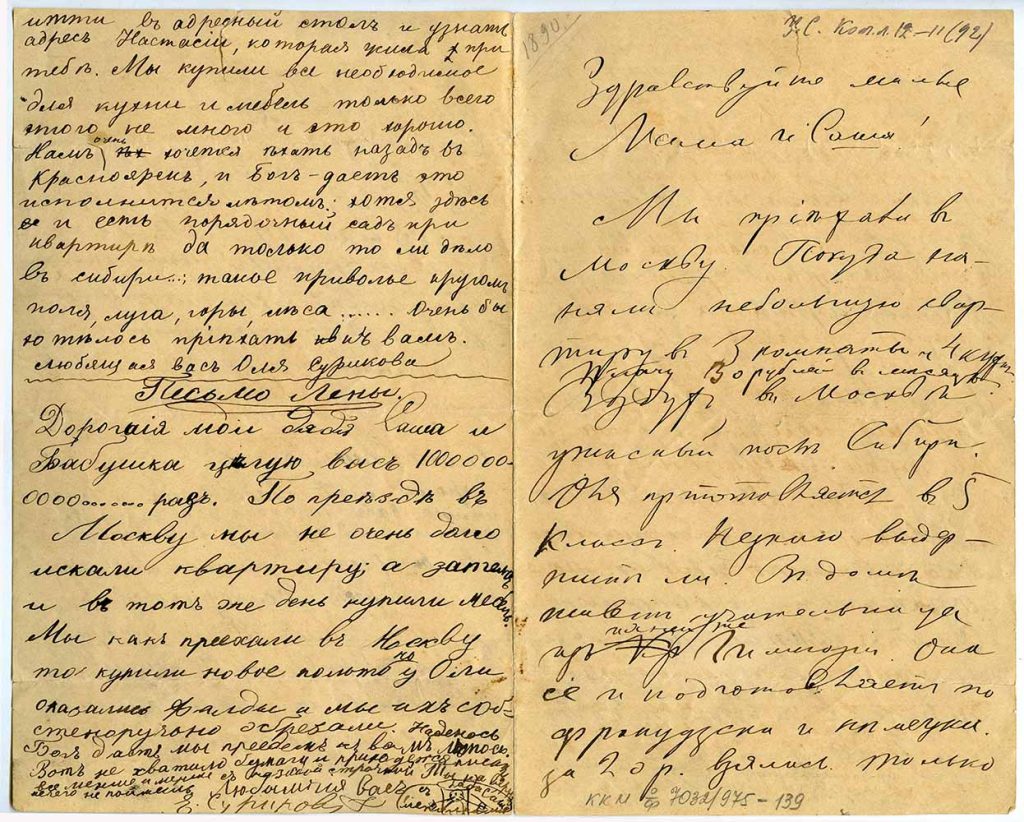 итти въ адресный столъ и узнать
адресъ Настасіи, которая жила при
тебѣ. Мы купили все необходимое
для кухни и мебель только всего
этого не много и это хорошо.
Намъ очень хочется ѣхать назадъ въ
Красноярскъ, и Богъ-дастъ это
исполнится лѣтомъ; хотя здѣсь
и есть порядочный садъ при
квартирѣ да только то ли дѣло
въ сибири...; такое приволье кругомъ
поля, луга, горы, лѣса ...... Очень бы
хотѣлось пріѣхать къ вамъ.
любящая васъ Оля Сурикова
Письмо Лены.
Дорогія мои дядя Саша и
Бабушка цѣлую васъ 1000000-
00000........ разъ. По преѣздѣ въ
Москву мы не очень долго
искали квартиру; а затемъ
и въ тотъ же день купили мебель.
Мы какъ преехали въ Москву
то купили новое польто на у Оли
оказались фалды и мы ихъ соб-
стеноручно обрезали. Надеюсь
Богъ дастъ мы преедемъ къ вамъ летомъ.
Вотъ не хватило бумаги и приходится писать
все меньше и меньше съ каждой строчкой
нечего не поймешь Любящая васъ
Е. Сурикова
1890.
Н.С. Копл 12-11(92)
Здравствуйте милые
Мама и Саша!
Мы пріѣхали в
Москву. Покуда на-
няли небольшую квар-
тиру в 3 комнаты и 4 кухн.
Плачу 30 рублей в месяцъ.
Воздухъ въ Москвѣ
ужасный послѣ Сибири.
Оля приготовляется в 5
класс. Не знаю выдер-
житъ ли. В домѣ
живетъ учительница
Гимназіи. Она
ее и подготовляетъ по
французски и нѣмецки.
за 20 р. взялась. Только
ККМ о/ф 7032/975-139